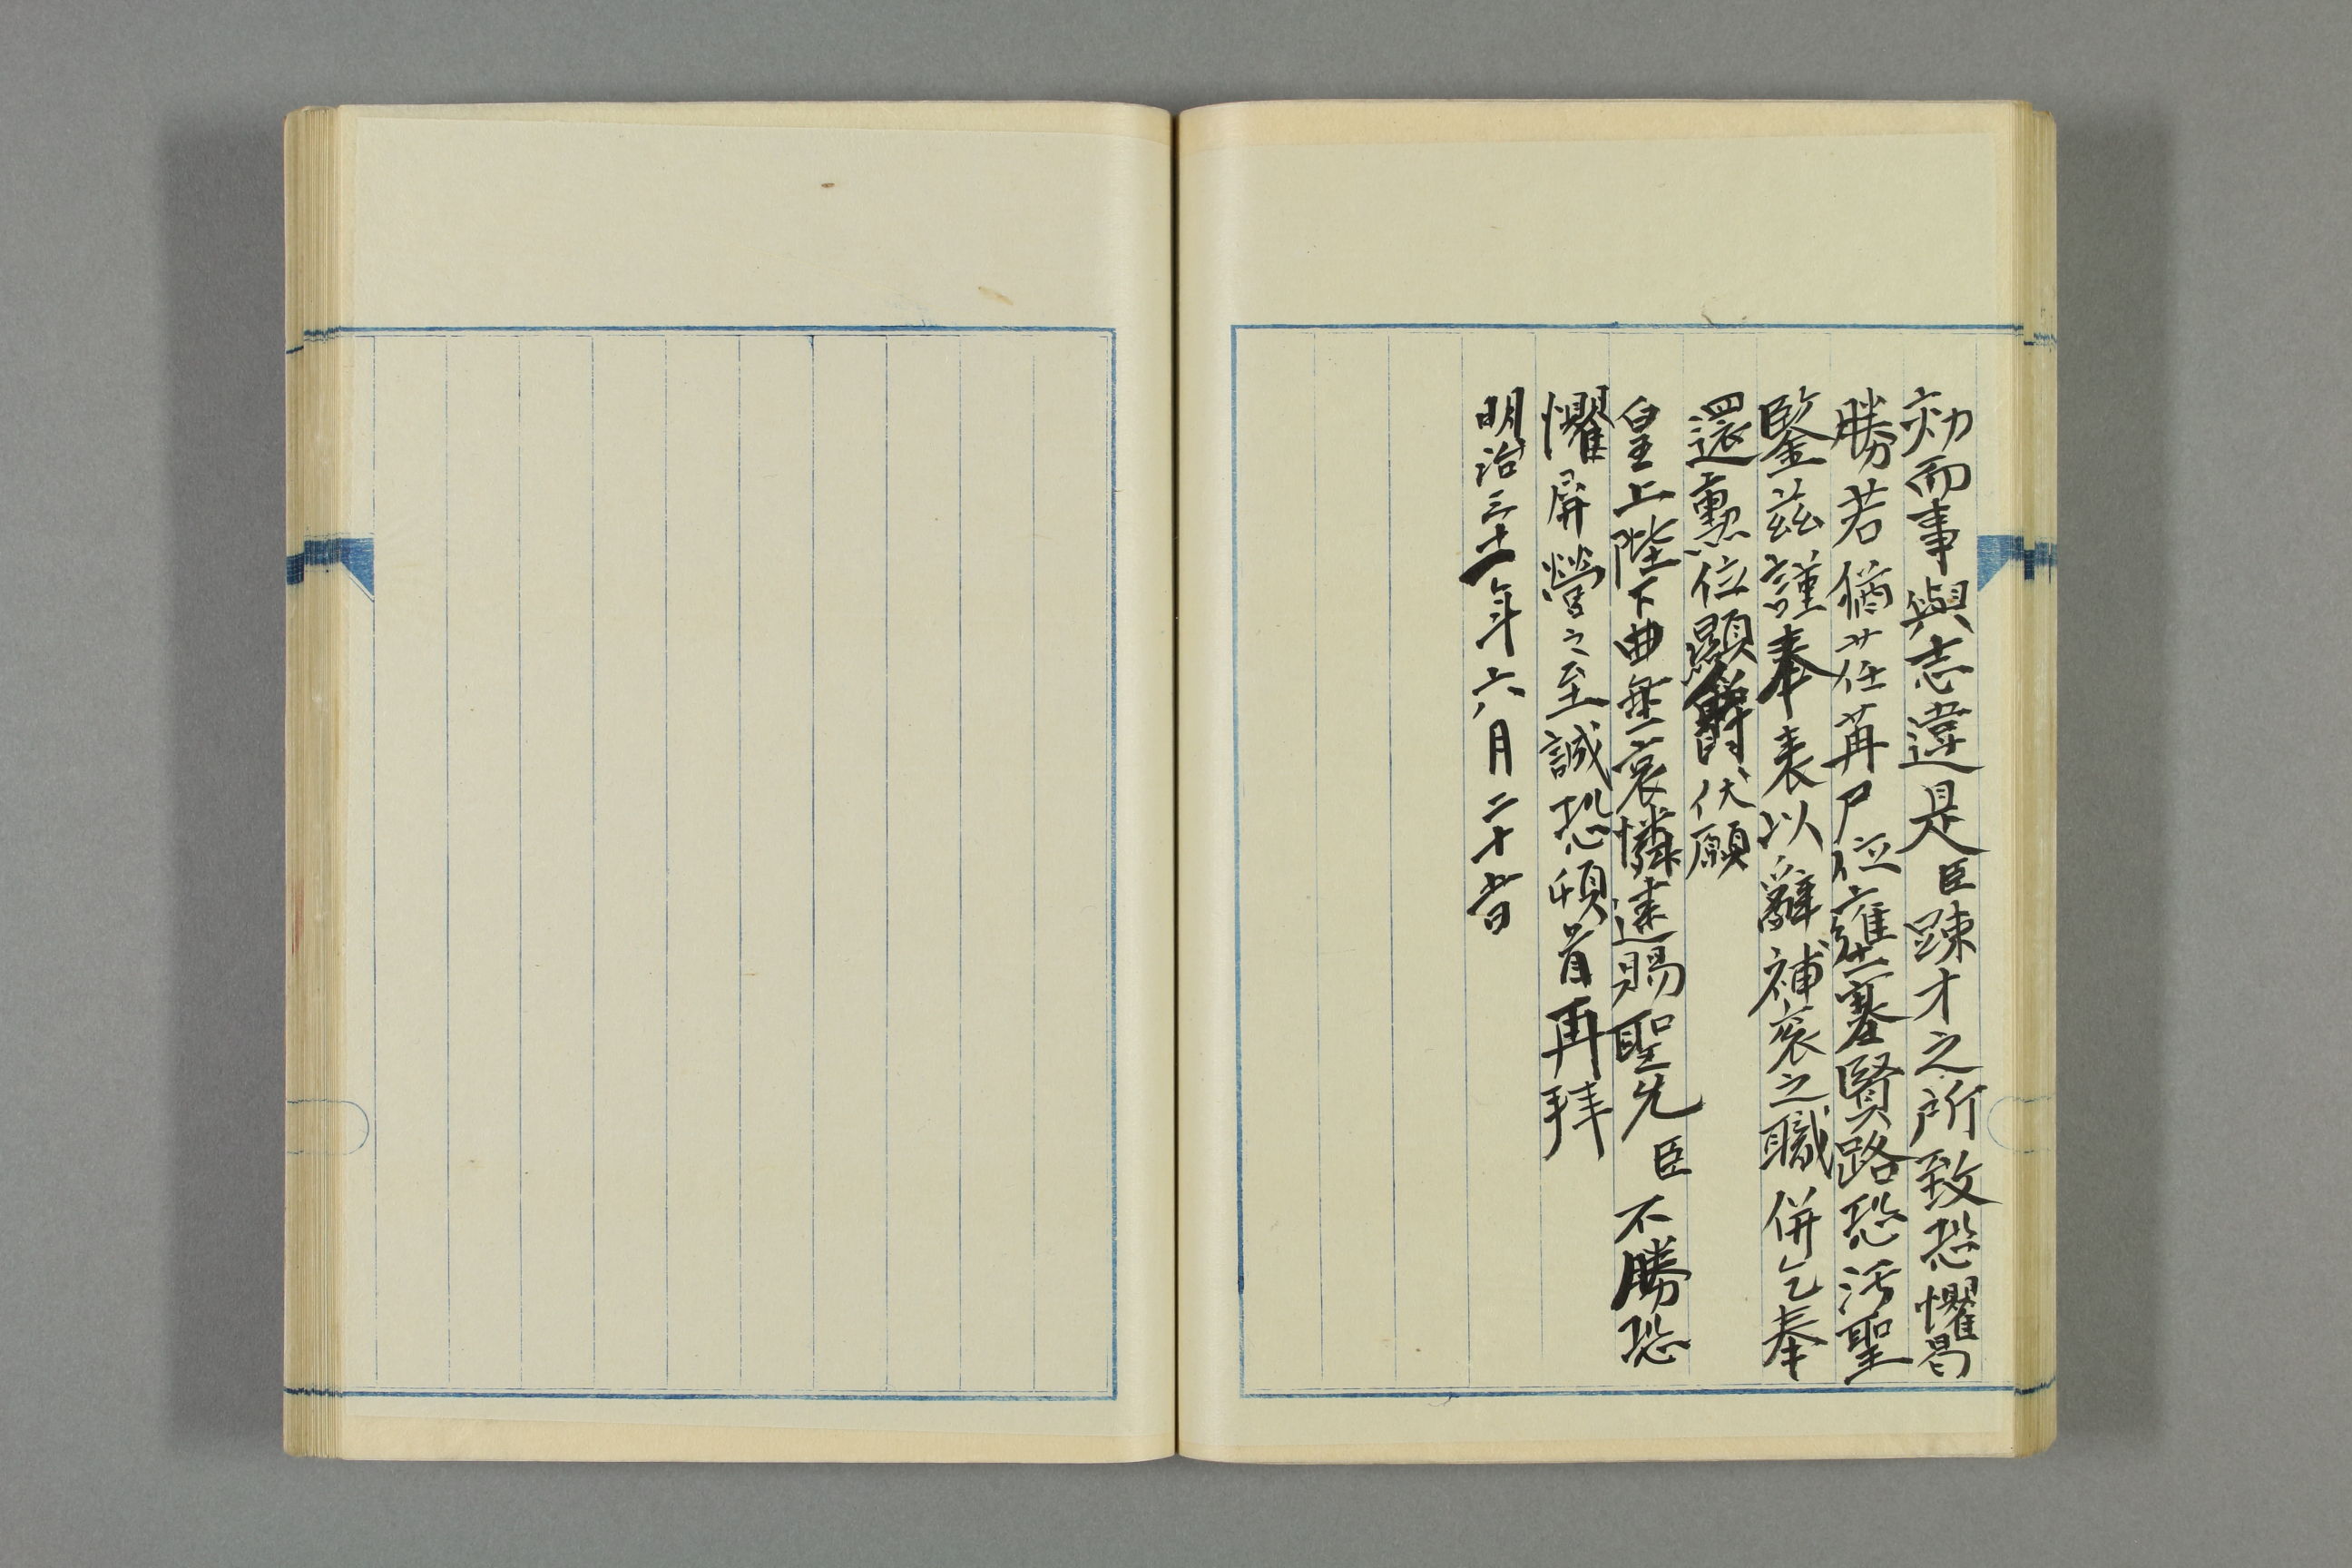 効而事與志違是臣踈才之所致恐懼曷
勝若猶荏苒尸位壅塞賢路恐汚聖
鑒茲謹奉表以辭補袞之職併乞奉
還勲位顯爵伏願
皇上陛下曲垂哀憐速賜聖允臣不勝恐
懼屏營之至誠恐頓首再拜
明治三十一年六月二十四日